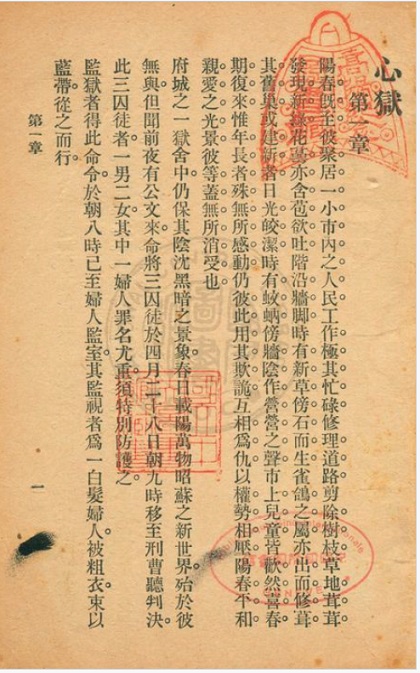 心獄
第一章
陽春旣至彼聚居一小市內之人民工作極其忙碌修理道路剪除樹枝草地茸茸
發現新綠花雲亦含苞欲吐階沿牆脚時有新草傍石而生雀鴿之屬亦出而修葺
其舊巢或建新者日光皎潔時有蚊蚋傍牆陰作營營之聲市上兒童皆歡然喜春
期復來惟年長者殊無所感動仍彼此用其欺詭互相爲仇以權勢相壓陽春平和
親愛之光景彼等蓋無所消受也
府城之一獄舍中仍保其陰沈黑暗之景象春日載陽萬物昭蘇之新世界殆於彼
無與但聞前夜有公文來命將三囚徒於四月二十八日朝九時移至刑曹聽判決
此三囚徒者一男二女其中一婦人罪名尤重須特別防護之
監獄者得此命令於朝八時已至婦人監室其監視者爲一白髮婦人被粗衣束以
藍帶從之而行
第一章
一